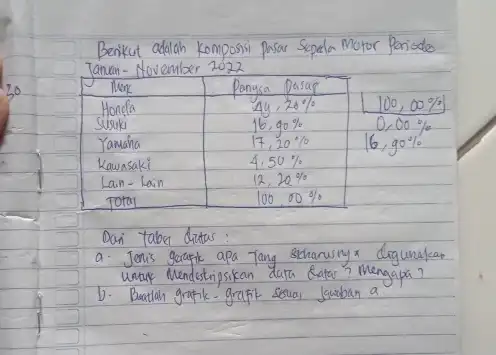 30
Berikut adalah Komposisi Pasar Sepeda Motor Periode
Januari - November 2022
Merk Pangsa Pasar
Honda 49, 20 % 100, 00 %
Suzuki 16, 90 % 0,00 %
Yamaha 17, 20 % 16, 90 %
Kawasaki 4, 50 %
Lain - Lain 12, 20 %
TOTAL 100, 00 %
Dari Tabel diatas :
a. Jenis grafik apa yang seharusnya digunakan
untuk Mendeskripsikan data diatas ? Mengapa ?
b. Buatlah grafik - grafik sesuai jawaban a